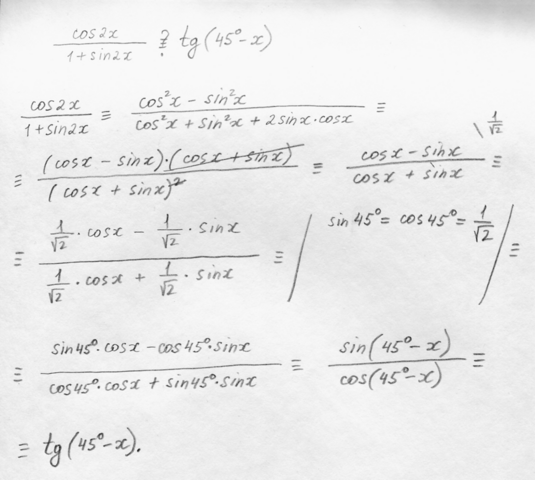 cos2x / 1+sin2x ? tg(45°-x)
cos2x / 1+sin2x ≡ cos²x - sin²x / cos²x + sin²x + 2sinx·cosx ≡
≡ (cosx - sinx)·(cosx + sinx) / (cosx + sinx)² ≡ cosx - sinx / cosx + sinx \ 1/√2 ≡
≡ 1/√2 · cosx - 1/√2 · sinx / 1/√2 · cosx + 1/√2 · sinx ≡ / sin45° = cos45° = 1/√2 / ≡
≡ sin45°·cosx - cos45°·sinx / cos45°·cosx + sin45°·sinx ≡ sin(45°-x) / cos(45°-x) ≡
≡ tg(45°-x).